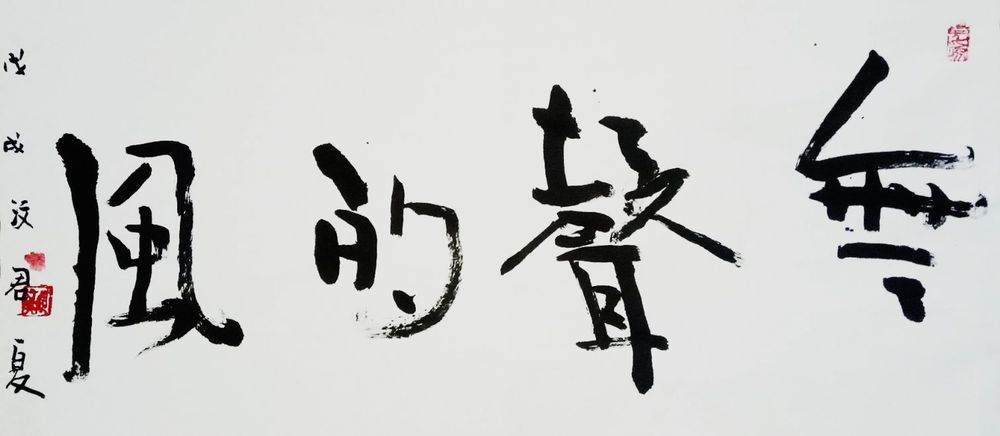 無聲的風
戊戌汶君夏